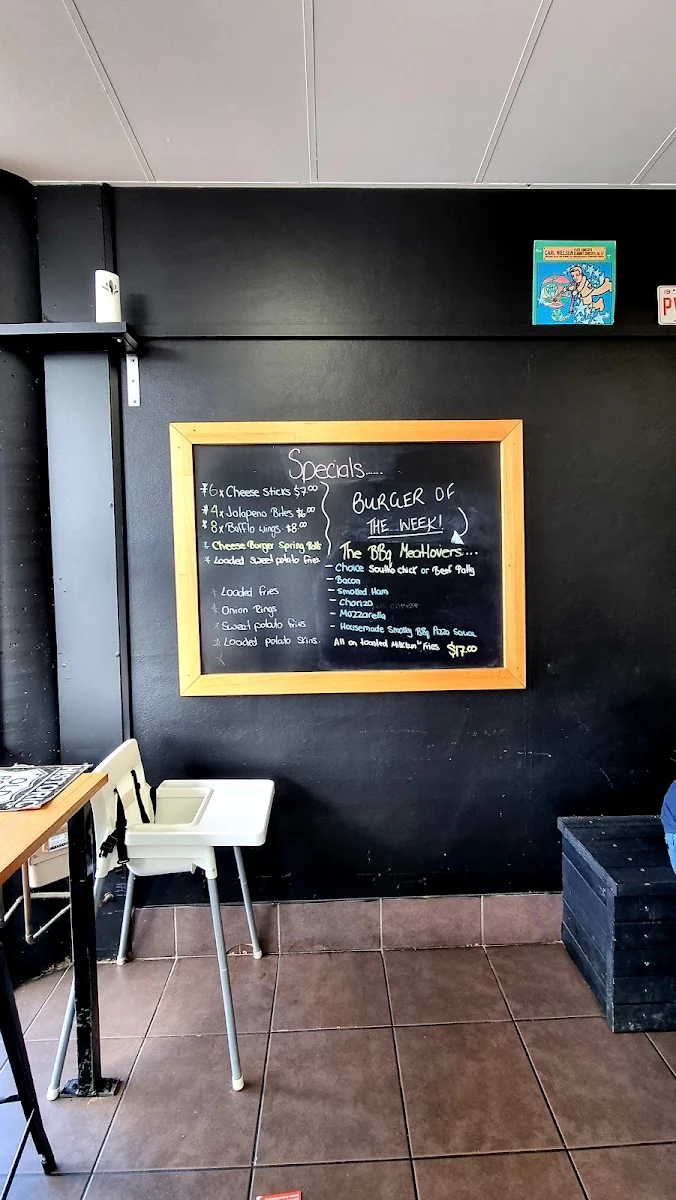 CARL NIELSEN
19
Specials.....
* 6 x Cheese sticks $7.00
* 4 x Jalapeno Bites $6.00
* 8 x Bufflo wings. $8.00
* Cheese Burger Spring Rolls
* Loaded sweet potato fries
* Loaded fries
* Onion Rings
* Sweet potato fries
* Loaded potato Skins.
BURGER OF
THE WEEK!
The BBq Meatlovers....
- Choice Southo chick or Beef Patty
- Bacon
- Smoked Ham
- Chorizo
cheese
- Mozzarella
- Housemade Smokey BBq Pizza Sauce
All on toasted Milkbun w fries $17.00
HISTORIC